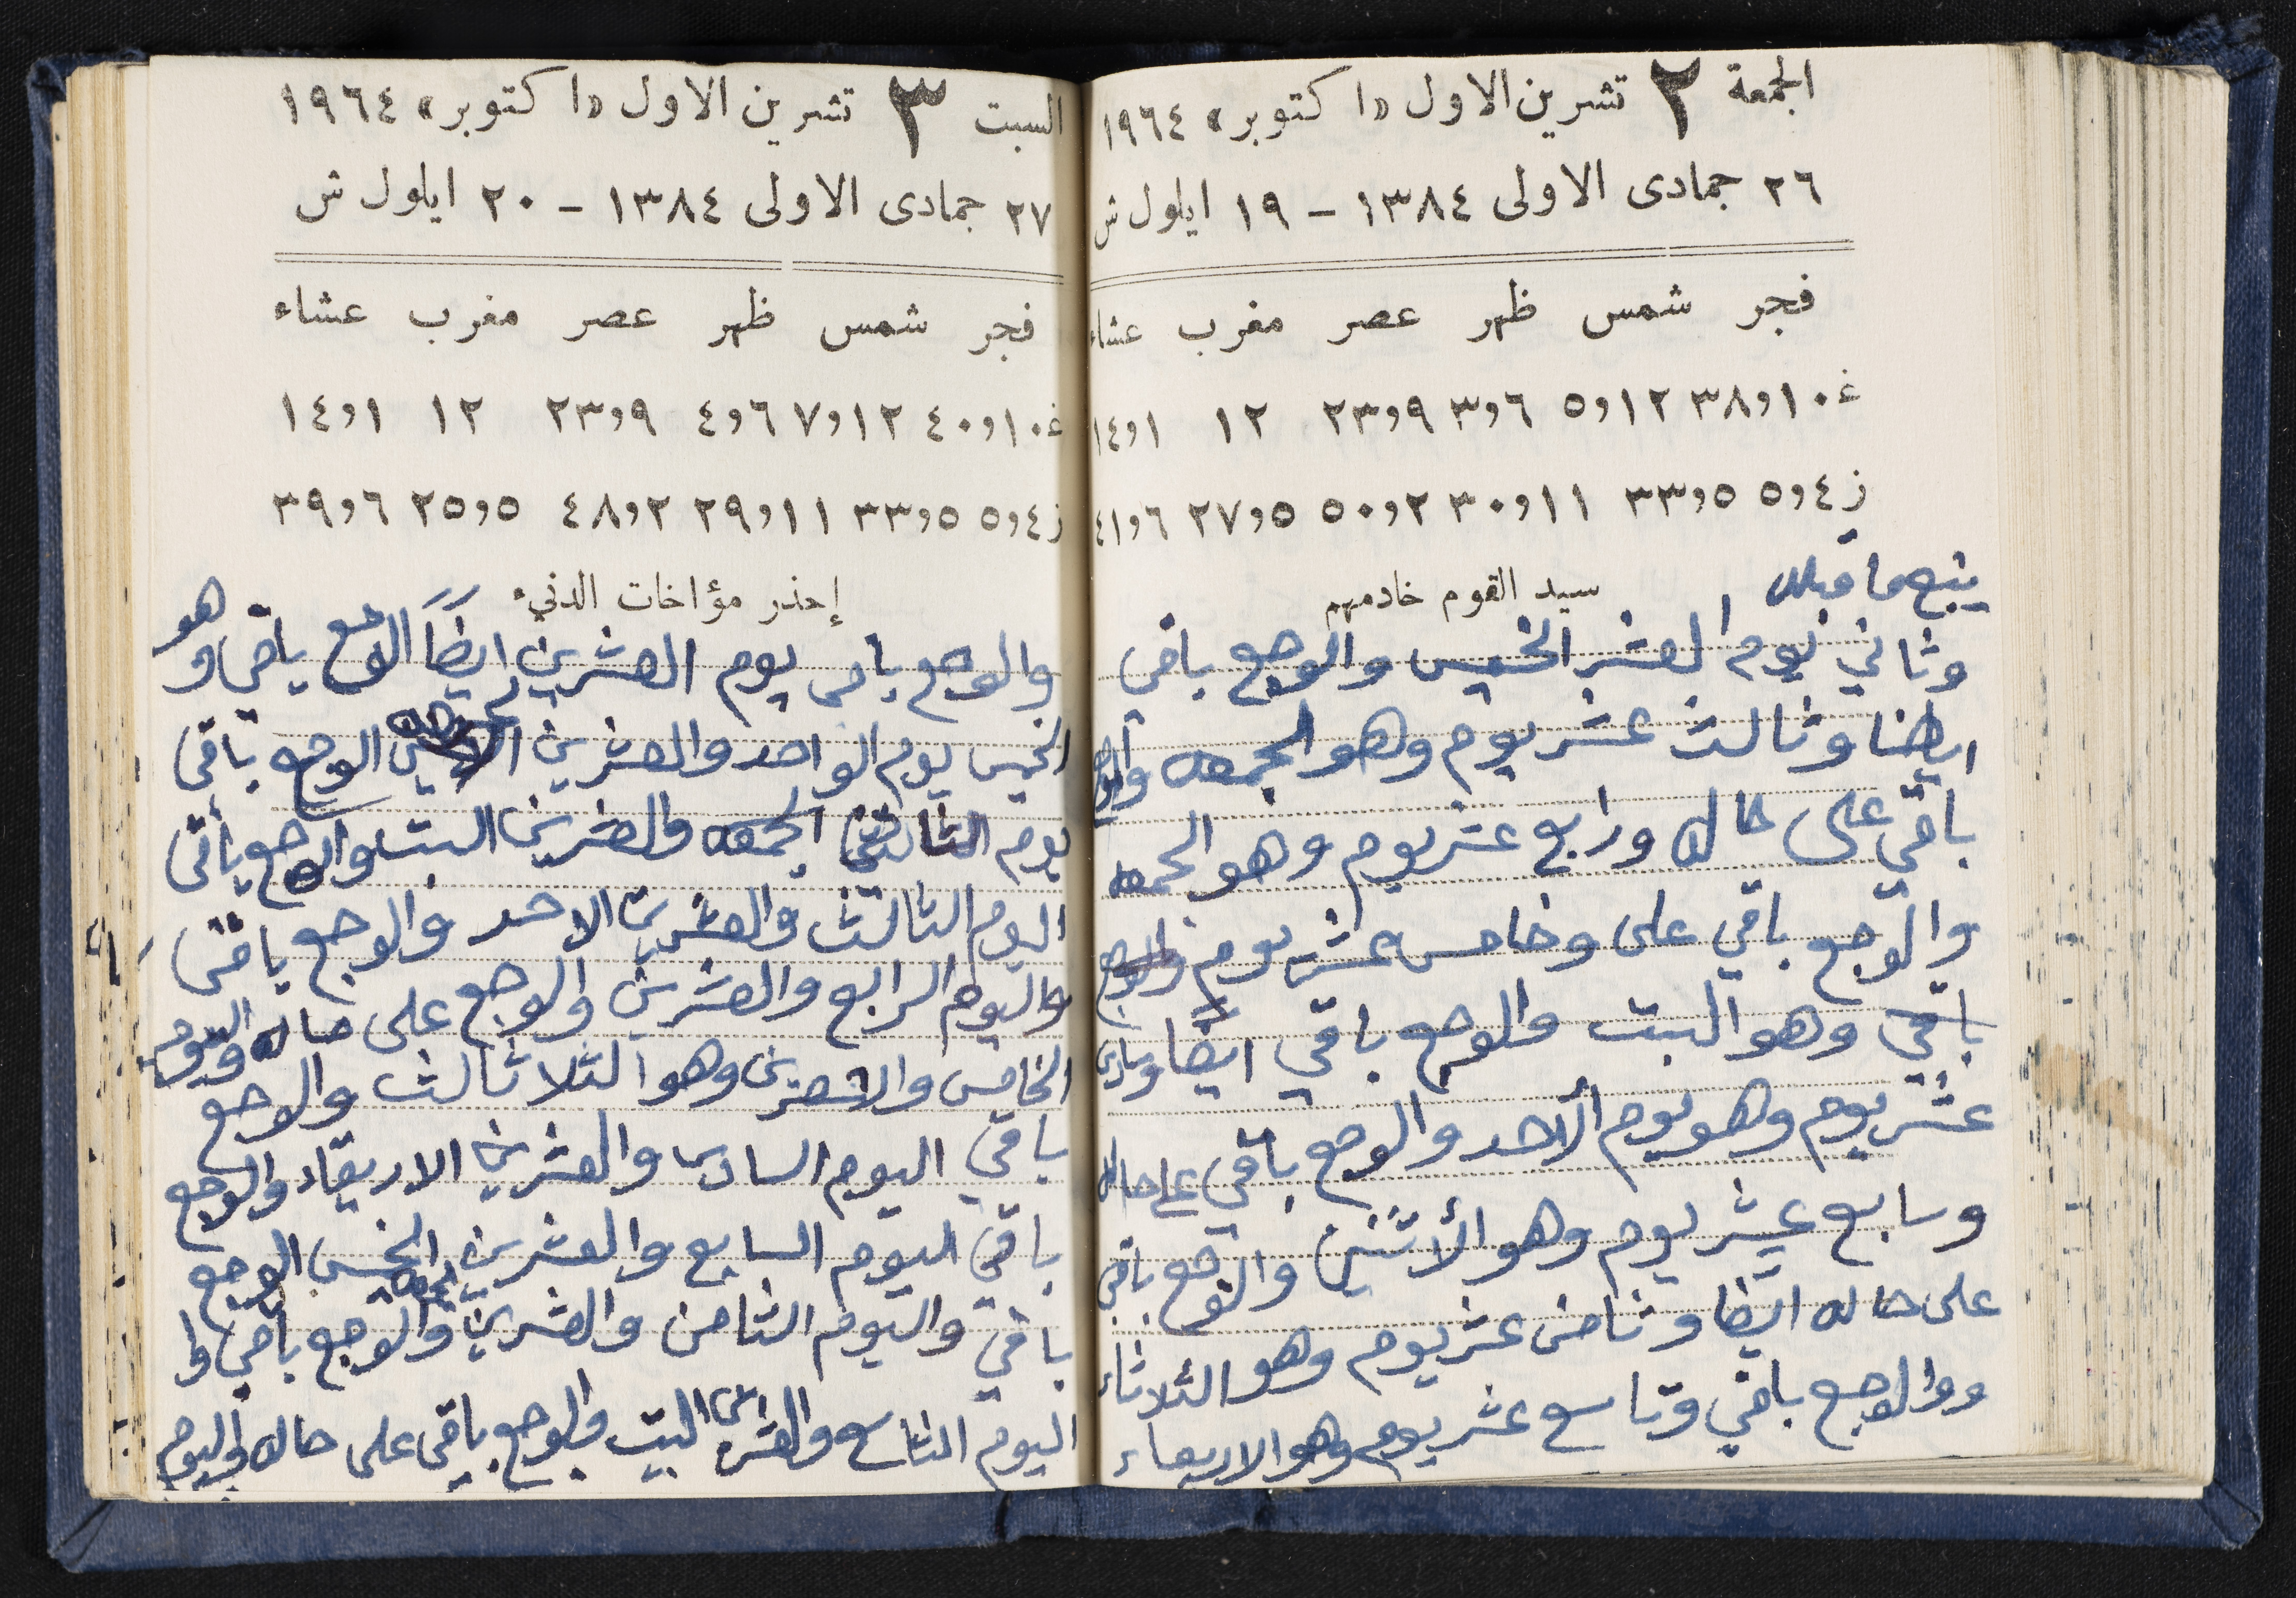 الجمعة ٢ تشرين الاول «اكتوبر» ١٩٦٤
٢٦ جمادى الاولى ١٣٨٤ - ١٩ ايلول ش
فجر شمس ظهر عصر مغرب عشاء
غ ٣٨,١٠ ٥,١٢ ٣,٦ ٢٣,٩ ١٢ ١٤,١
ز ٥,٤ ٣٣,٥ ٣٠,١١ ٥٠,٢ ٢٧,٥ ٤١,٦
سيد القوم خادمهم
يتبع ما قبله
وثاني يوم العشر الخميس والوجع باقي
ايضا وثالث عشر يوم وهو الجمعه والوجع
باقي على حاله ورابع عشر يوم وهو الجمعه
والوجع باقي على وخامس عشر يوم والوجع
باقي وهو السبت والوجع باقي ايضا وسادس
عشر يوم وهو يوم الأحد والوجع باقي على حاله
وسابع عشر يوم وهو الأثنين والوجع باقي
على حاله ايضا وثامن عشر يوم وهو الثلاثاء
ووالوجع باقي وتاسع عشر يوم وهو الاربعاء
السبت ٣ تشرين الاول «اكتوبر» ١٩٦٤
٢٧ جمادى الاولى ١٣٨٤ - ٢٠ ايلول ش
فجر شمس ظهر عصر مغرب عشاء
غ ٤٠,١٠ ٧,١٢ ٤,٦ ٢٣,٩ ١٢ ١٤,١
ز ٥,٤ ٣٣,٥ ٢٩,١١ ٤٨,٢ ٢٥,٥ ٣٩,٦
إحذر مؤاخات الدنيء
والوجع باقى يوم العشرين ايضاً الوجع باقي وهو
الخميس يوم الواحد والعشرين الجمعه الوجع باقى
يوم الثاني الجمعه والعشرين السبت والوجع باقى
اليوم الثالث والعشرين الاحد والوجع باقى
واليوم الرابع والعشرين والوجع على حاله واليوم
الخامس والعشرين وهو الثلاثالث والوجع
باقي اليوم السادس والعشرين الاربعاء والوجع
باقي اليوم السابع والعشرين الخميس الوجع
باقي واليوم الثامن والعشرين الجمعه والوجع باقي وا
اليوم التاسع والعشرين السبت والوجع باقى على حاله واليوم